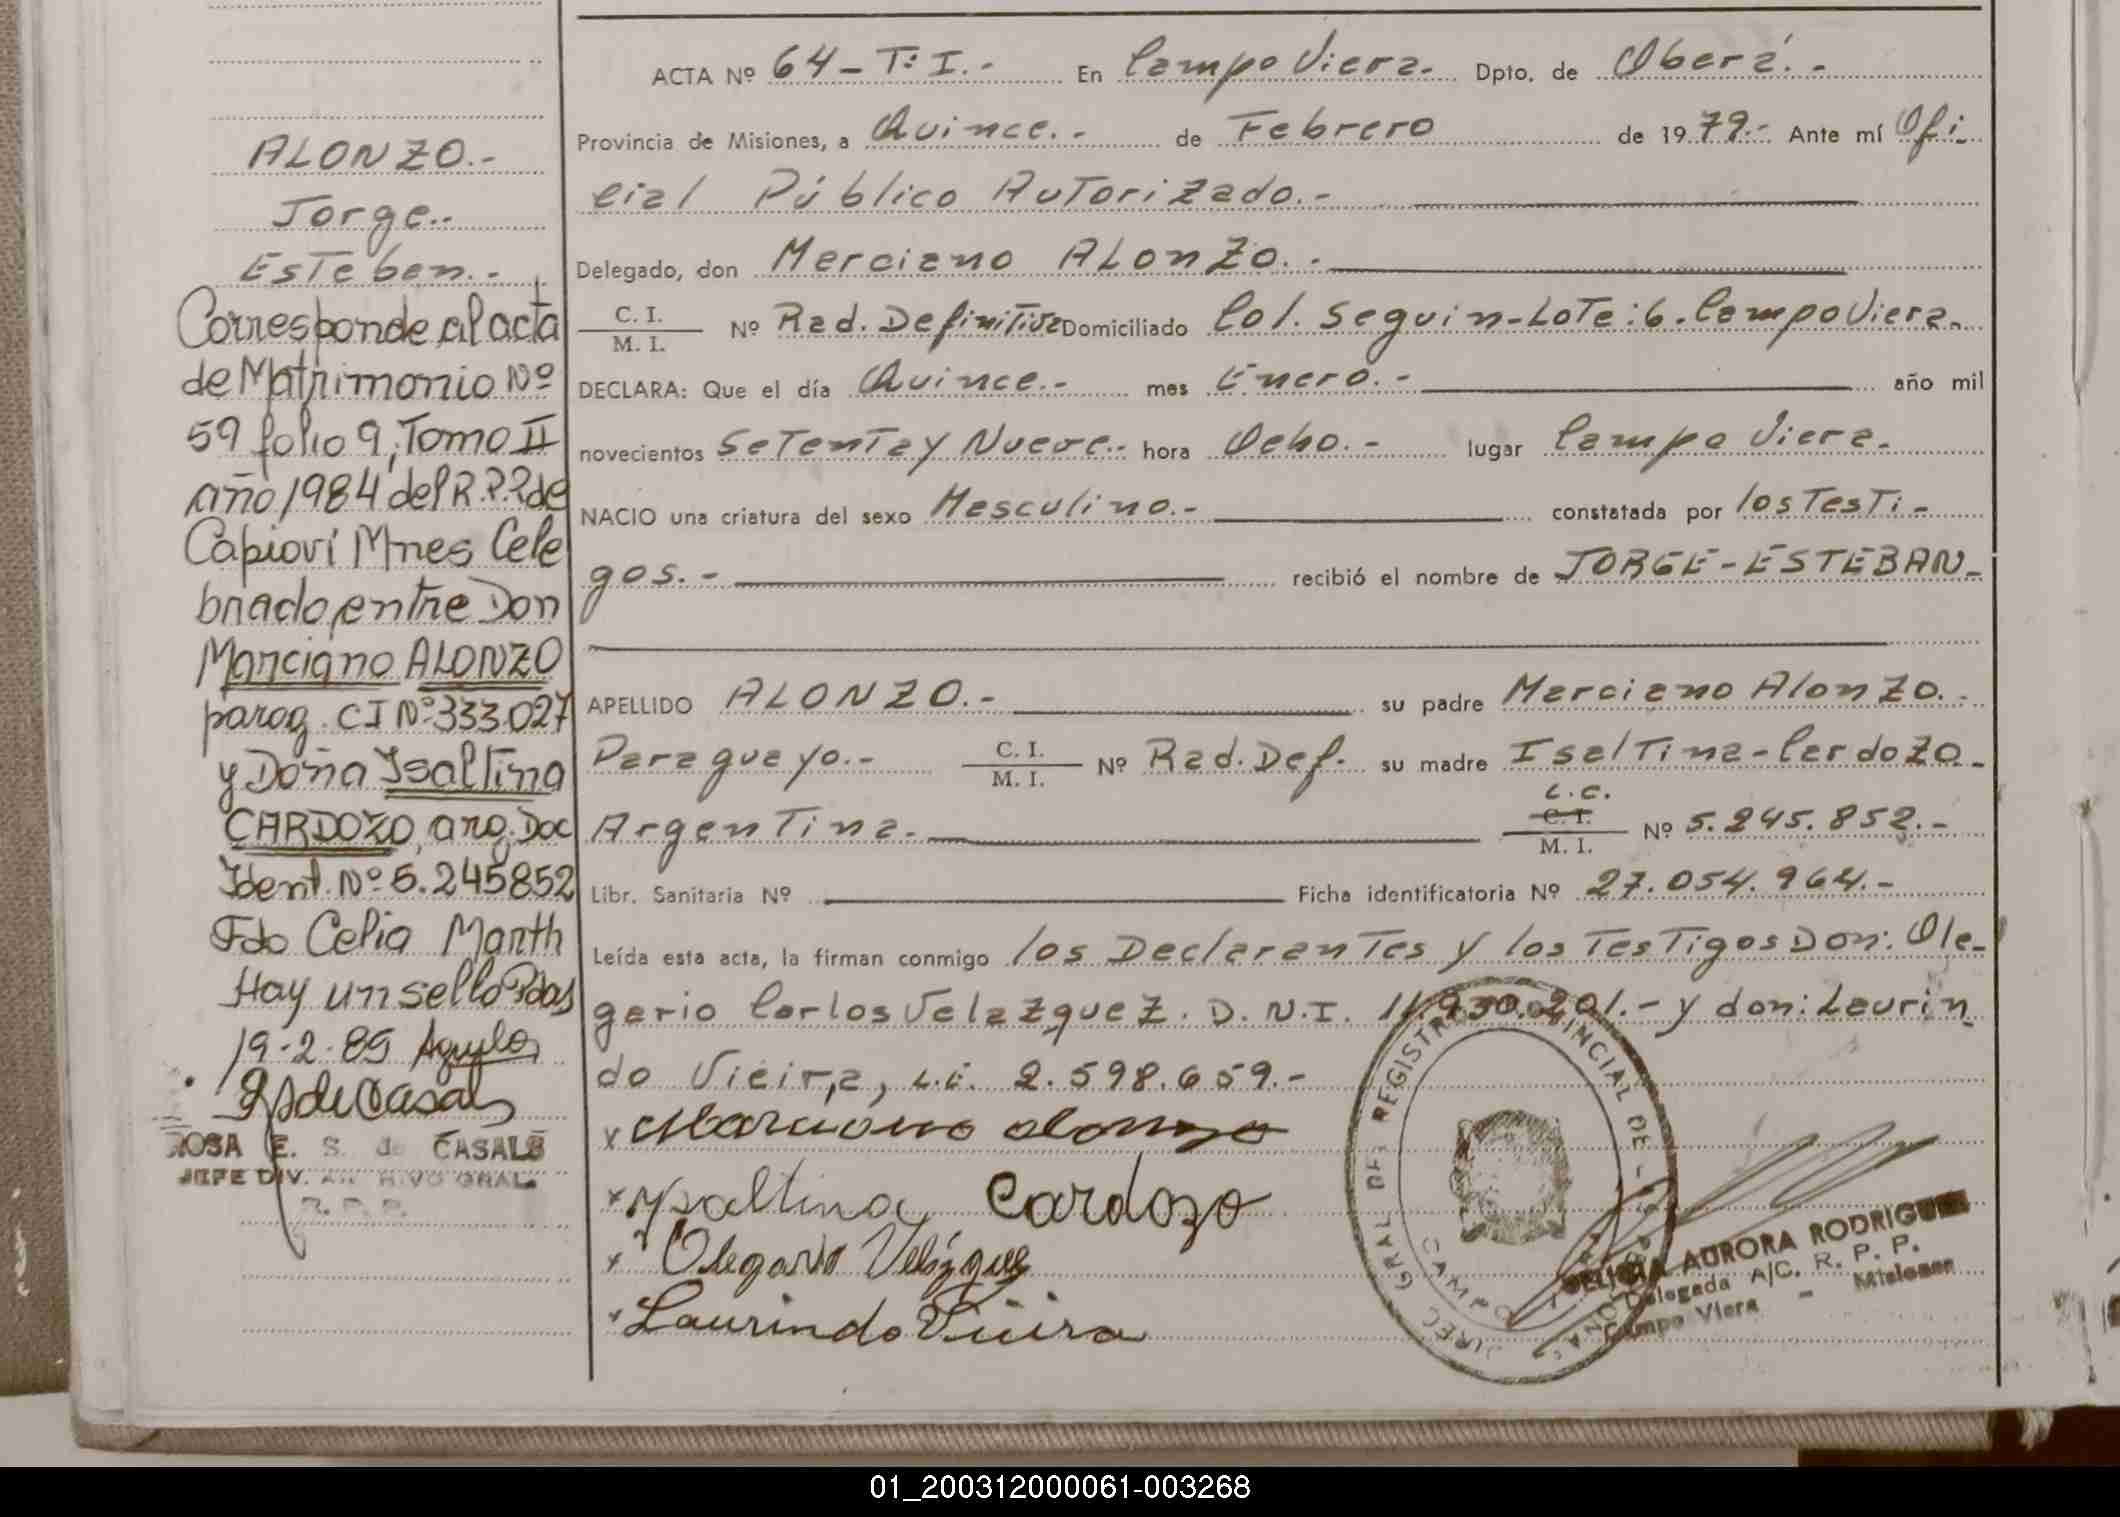 ALONZO.-
Jorge..
Esteban.-
Corresponde al acta
de Matrimonio Nº
59 folio 9, Tomo II
año 1984 del R.P.P. de
Capioví Mnes Cele
brado entre Don
Marciano ALONZO
parag. CI Nº 333.027
y Doña Isaltina
CARDOZO, arg. Doc
Ident. Nº 5.245852
Fdo Celia Marth
Hay un sello Pdas
19-2-89
ROSA E. S. de CASALS
JEFE DIV. ARCHIVO GRAL.
R. P. P.
ACTA Nº 64-T:I.- En Campo Viera.- Dpto. de Oberá.-
Provincia de Misiones, a Quince.- de Febrero de 1979.- Ante mí Ofi-
cial Público Autorizado.-
Delegado, don Marciano ALONZO.-
C. I. / M. I. Nº Rad. Definitiva Domiciliado Col. Seguin-Lote:6.Campo Viera.
DECLARA: Que el día Quince.- mes Enero.- año mil
novecientos Setenta y Nueve.- hora Ocho.- lugar Campo Viera.
NACIO una criatura del sexo Masculino.- constatada por los Testi-
gos.- recibió el nombre de JORGE-ESTEBAN-
APELLIDO ALONZO.- su padre Marciano Alonzo.-
Paraguayo.- C. I. / M. I. Nº Rad. Def. su madre Isaltina-Cardozo.-
L.C.
Argentina.- C. I. / M. I. Nº 5.245.852.-
Libr. Sanitaria Nº Ficha identificatoria Nº 27.054.964.-
Leída esta acta, la firman conmigo los Declarantes y los Testigos Don: Ole-
gario Carlos Velazquez. D.N.I. 11.930.201.- y don: Laurin
do Vieira, L.E. 2.598.659.-
x Marciano Alonzo
x Ysaltina Cardozo
x Olegario Velázquez
x Laurindo Vieira
DIREC. GRAL. DEL REGISTRO PROVINCIAL DE LAS PERSONAS
CAMPO VIERA
DELICIA AURORA RODRIGUEZ
Delegada A/C. R. P. P.
Campo Viera - Misiones
01_200312000061-003268